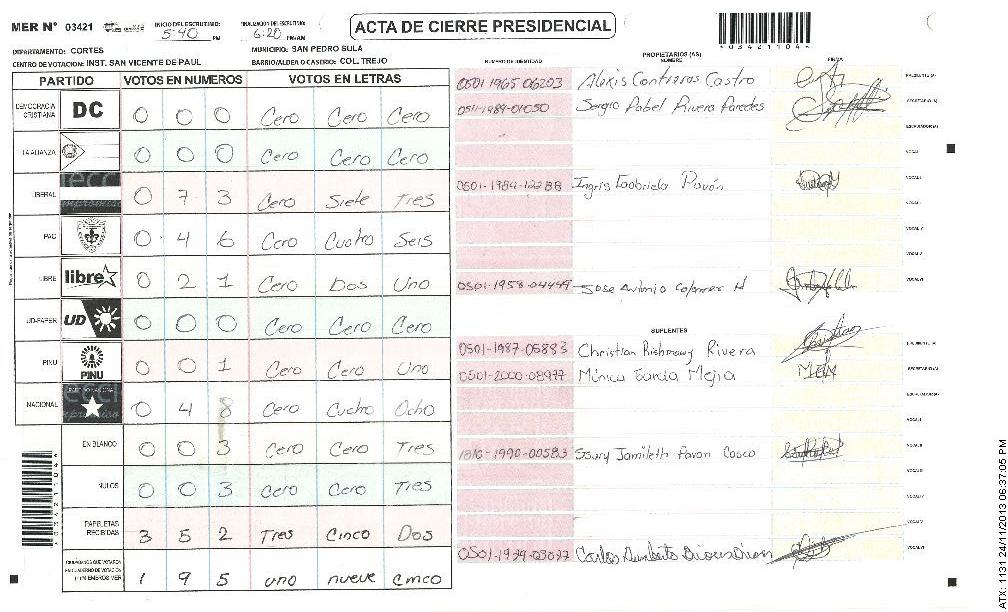 MER Nº 03421 INICIO DEL ESCRUTINIO: 5:40 PM FINALIZACION DEL ESCRUTINIO: 6:20 PM/AM
ACTA DE CIERRE PRESIDENCIAL
*03421104*
DEPARTAMENTO: CORTES MUNICIPIO: SAN PEDRO SULA
CENTRO DE VOTACION: INST. SAN VICENTE DE PAUL BARRIO/ALDEA O CASERIO: COL. TREJO
PARTIDO VOTOS EN NUMEROS VOTOS EN LETRAS
DEMOCRACIA CRISTIANA DC 0 0 0 Cero Cero Cero
LA ALIANZA 0 0 0 Cero Cero Cero
LIBERAL 0 7 3 Cero Siete Tres
PAC 0 4 6 Cero Cuatro Seis
LIBRE libre 0 2 1 Cero Dos Uno
UD-FAPER UD 0 0 0 Cero Cero Cero
PINU PINU 0 0 1 Cero Cero Uno
NACIONAL 0 4 8 Cero Cuatro Ocho
EN BLANCO 0 0 3 Cero Cero Tres
NULOS 0 0 3 Cero Cero Tres
PAPELETAS RECIBIDAS 3 5 2 Tres Cinco Dos
CIUDADANOS QUE VOTARON
EN CUADERNO DE VOTACION
MIEMBROS MER 1 9 5 uno nueve cinco
PROPIETARIOS (AS)
NUMERO DE IDENTIDAD NOMBRE FIRMA
0501 1965 06203 Alexis Contreras Castro PRESIDENTE (A)
0511-1989-01050 Sergio Pabel Rivera Paredes SECRETARIO (A)
ESCRUTADOR (A)
VOCAL I
0501-1984-12288 Ingris Gabriela Pavón
VOCAL V
0501-1958-04449 Jose Antonio H VOCAL VI
SUPLENTES
0501-1987-05883 Christian Rishmawy Rivera
0501-2000-08977 Mónica García Mejia SECRETARIO (A)
ESCRUTADOR (A)
VOCAL I
1810-1990-00583 Ssury Jamileth Pavon Casco VOCAL II
VOCAL III
VOCAL IV
VOCAL V
Carlos Humberto VOCAL VI
ATX: 1131 24/11/2013 06:37:05 PM